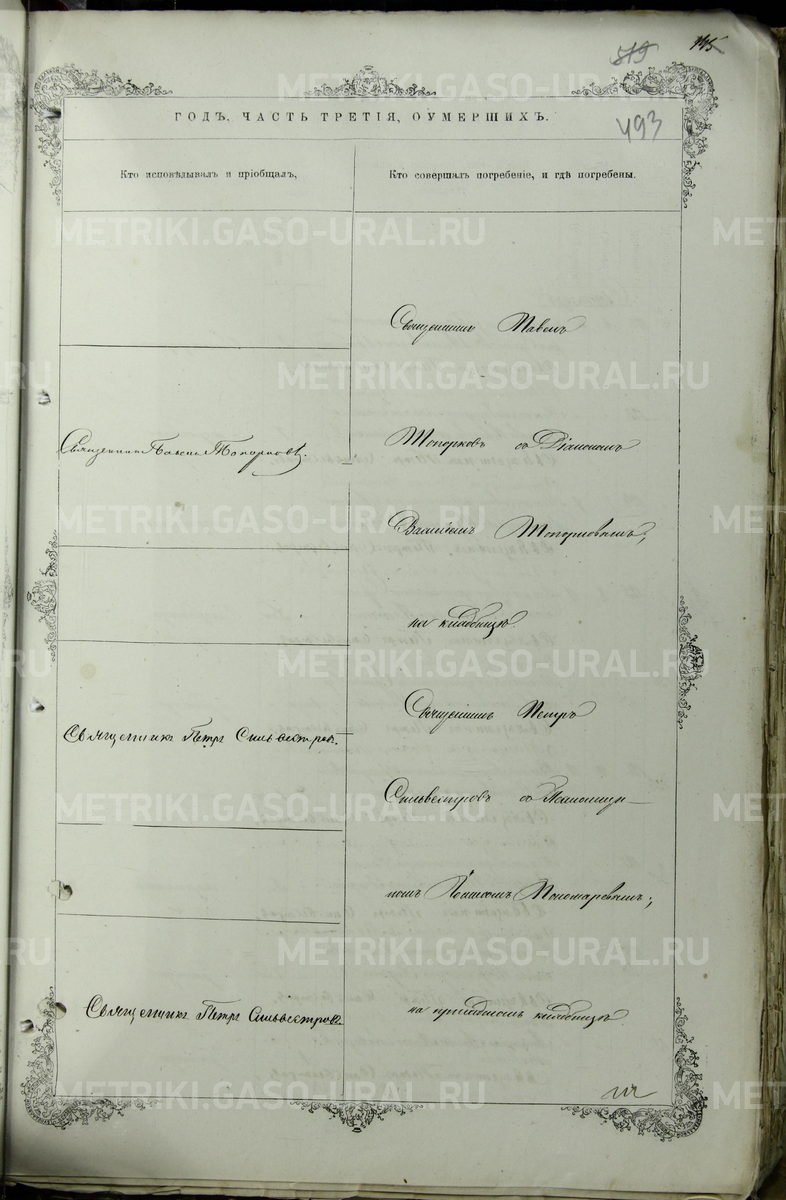 145
519
493
ГОДЪ, ЧАСТЬ ТРЕТІЯ, ОУМЕРШИХЪ.
Кто исповѣдывалъ и пріобщалъ,
Кто совершалъ погребеніе, и гдѣ погребены.
Священникъ Павелъ
Священникъ Павелъ Топорковъ.
Топорковъ съ Діакономъ
Василіемъ Топорковымъ;
на кладбищѣ.
Священникъ Петръ
Священникъ Петръ Сильвестровъ.
Сильвестровъ съ
Пономаревымъ;
Священникъ Петръ Сильвестровъ.
на приходскомъ кладбищѣ
METRIKI.GASO-URAL.RU